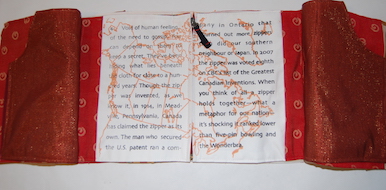 Void of human feeling,
of the need to
a secret. They
lies beneath
cloth for close to a hun-
dred years. Though the zip-
per was invented, as we
know it, in 1914, in Mead-
ville, Pennsylvania, Canada
has claimed the zipper as its
own. The man who secured
the U.S. patent ran a com-
pany in Ontario that
turned out more zippers
than did our southern
neighbour or Japan. In 2007
the zipper was voted eighth
on CBC's list of the Greatest
Canadian Inventions. When
you think of all a zipper
holds together what a
metaphor for our nation
it's shocking it ranked lower
than five-pin bowling and
the Wonderbra.